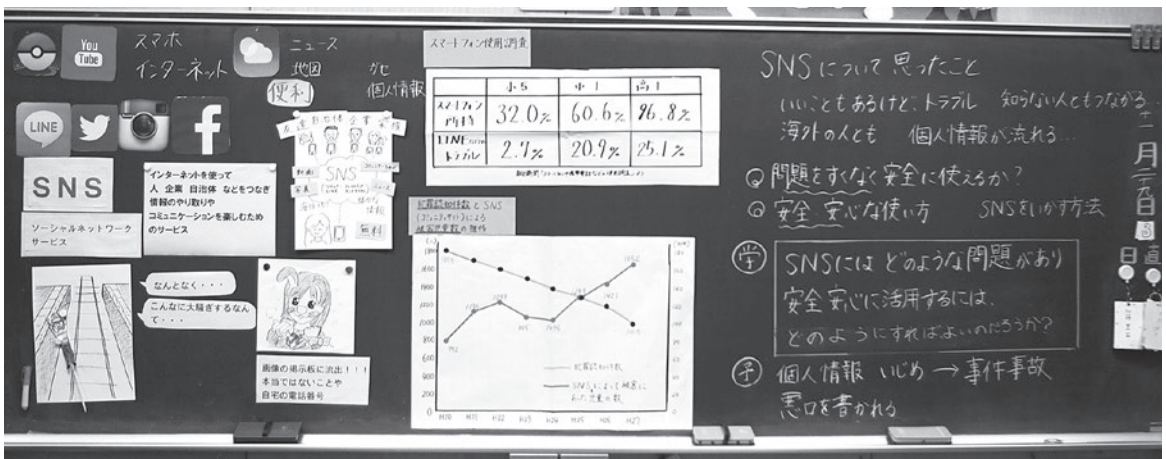 You
Tube
スマホ
インターネット
ニュース
地図
便利
個人情報
LINE
f
SNS
ソーシャルネットワーク
サービス
インターネットを使って
人 企業 自治体 などをつなぎ
情報のやり取りや
コミュニケーションを楽しむため
のサービス
友達 自治体 企業 家族
SNS
無料
なんとなく・・・
こんなに大騒ぎするなん
て・・・
画像の掲示板に流出！！！
本当ではないことや
自宅の電話番号
スマートフォン使用調査
小5 中1 高1
スマートフォン
所持 32.0% 60.6% 96.8%
LINE
トラブル 2.7% 20.9% 25.1%
犯罪認知件数とSNS
(コミュニティサイト)による
被害児童数の推移
犯罪認知件数
SNSによって被害に
あった児童の数
H20 H21 H22 H23 H24 H25 H26 H27
SNSについて思ったこと
いいこともあるけど、トラブル 知らない人ともつながる
海外の人とも 個人情報が流れる…
問題をすくなく安全に使えるか?
安全 安心な使い方 SNSをいかす方法
学
SNSには どのような問題があり
安全安心に活用するには、
どのようにすればよいのだろうか?
予
個人情報 いじめ → 事件事故
悪口を書かれる
十一月二九日
日直